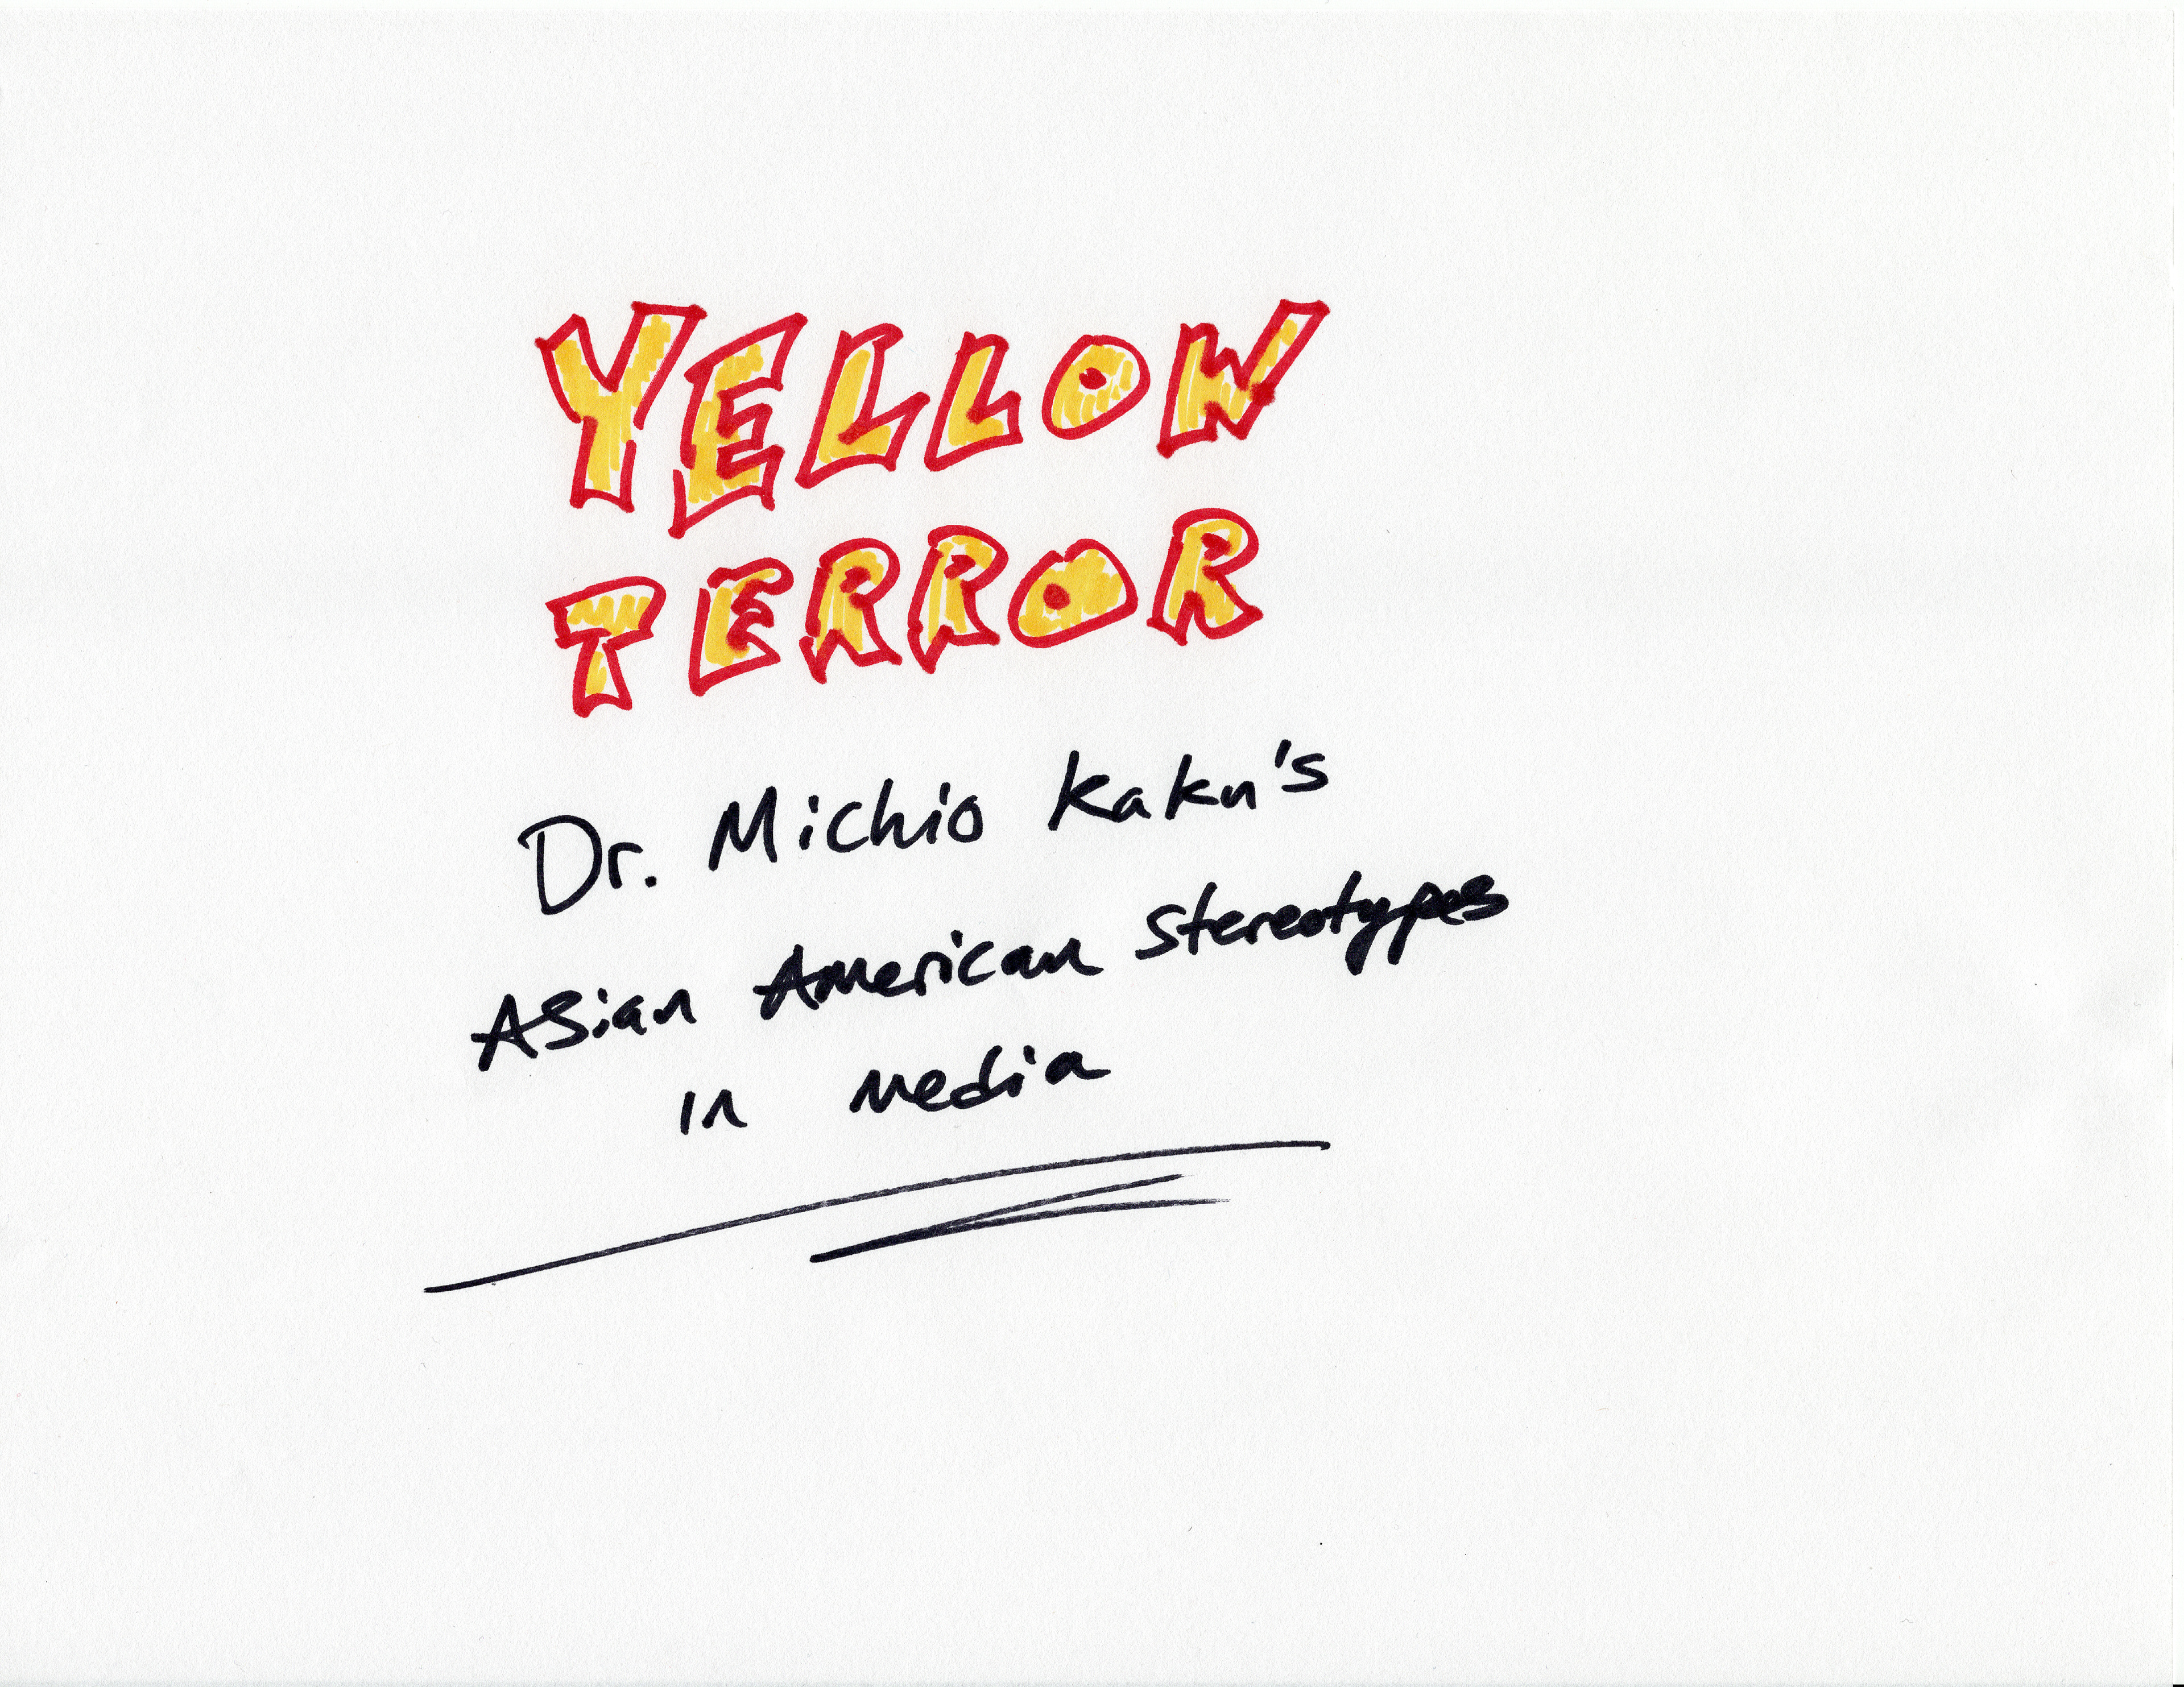 YELLOW
TERROR
Dr. Michio Kaku's
Asian American Stereotypes
in Media